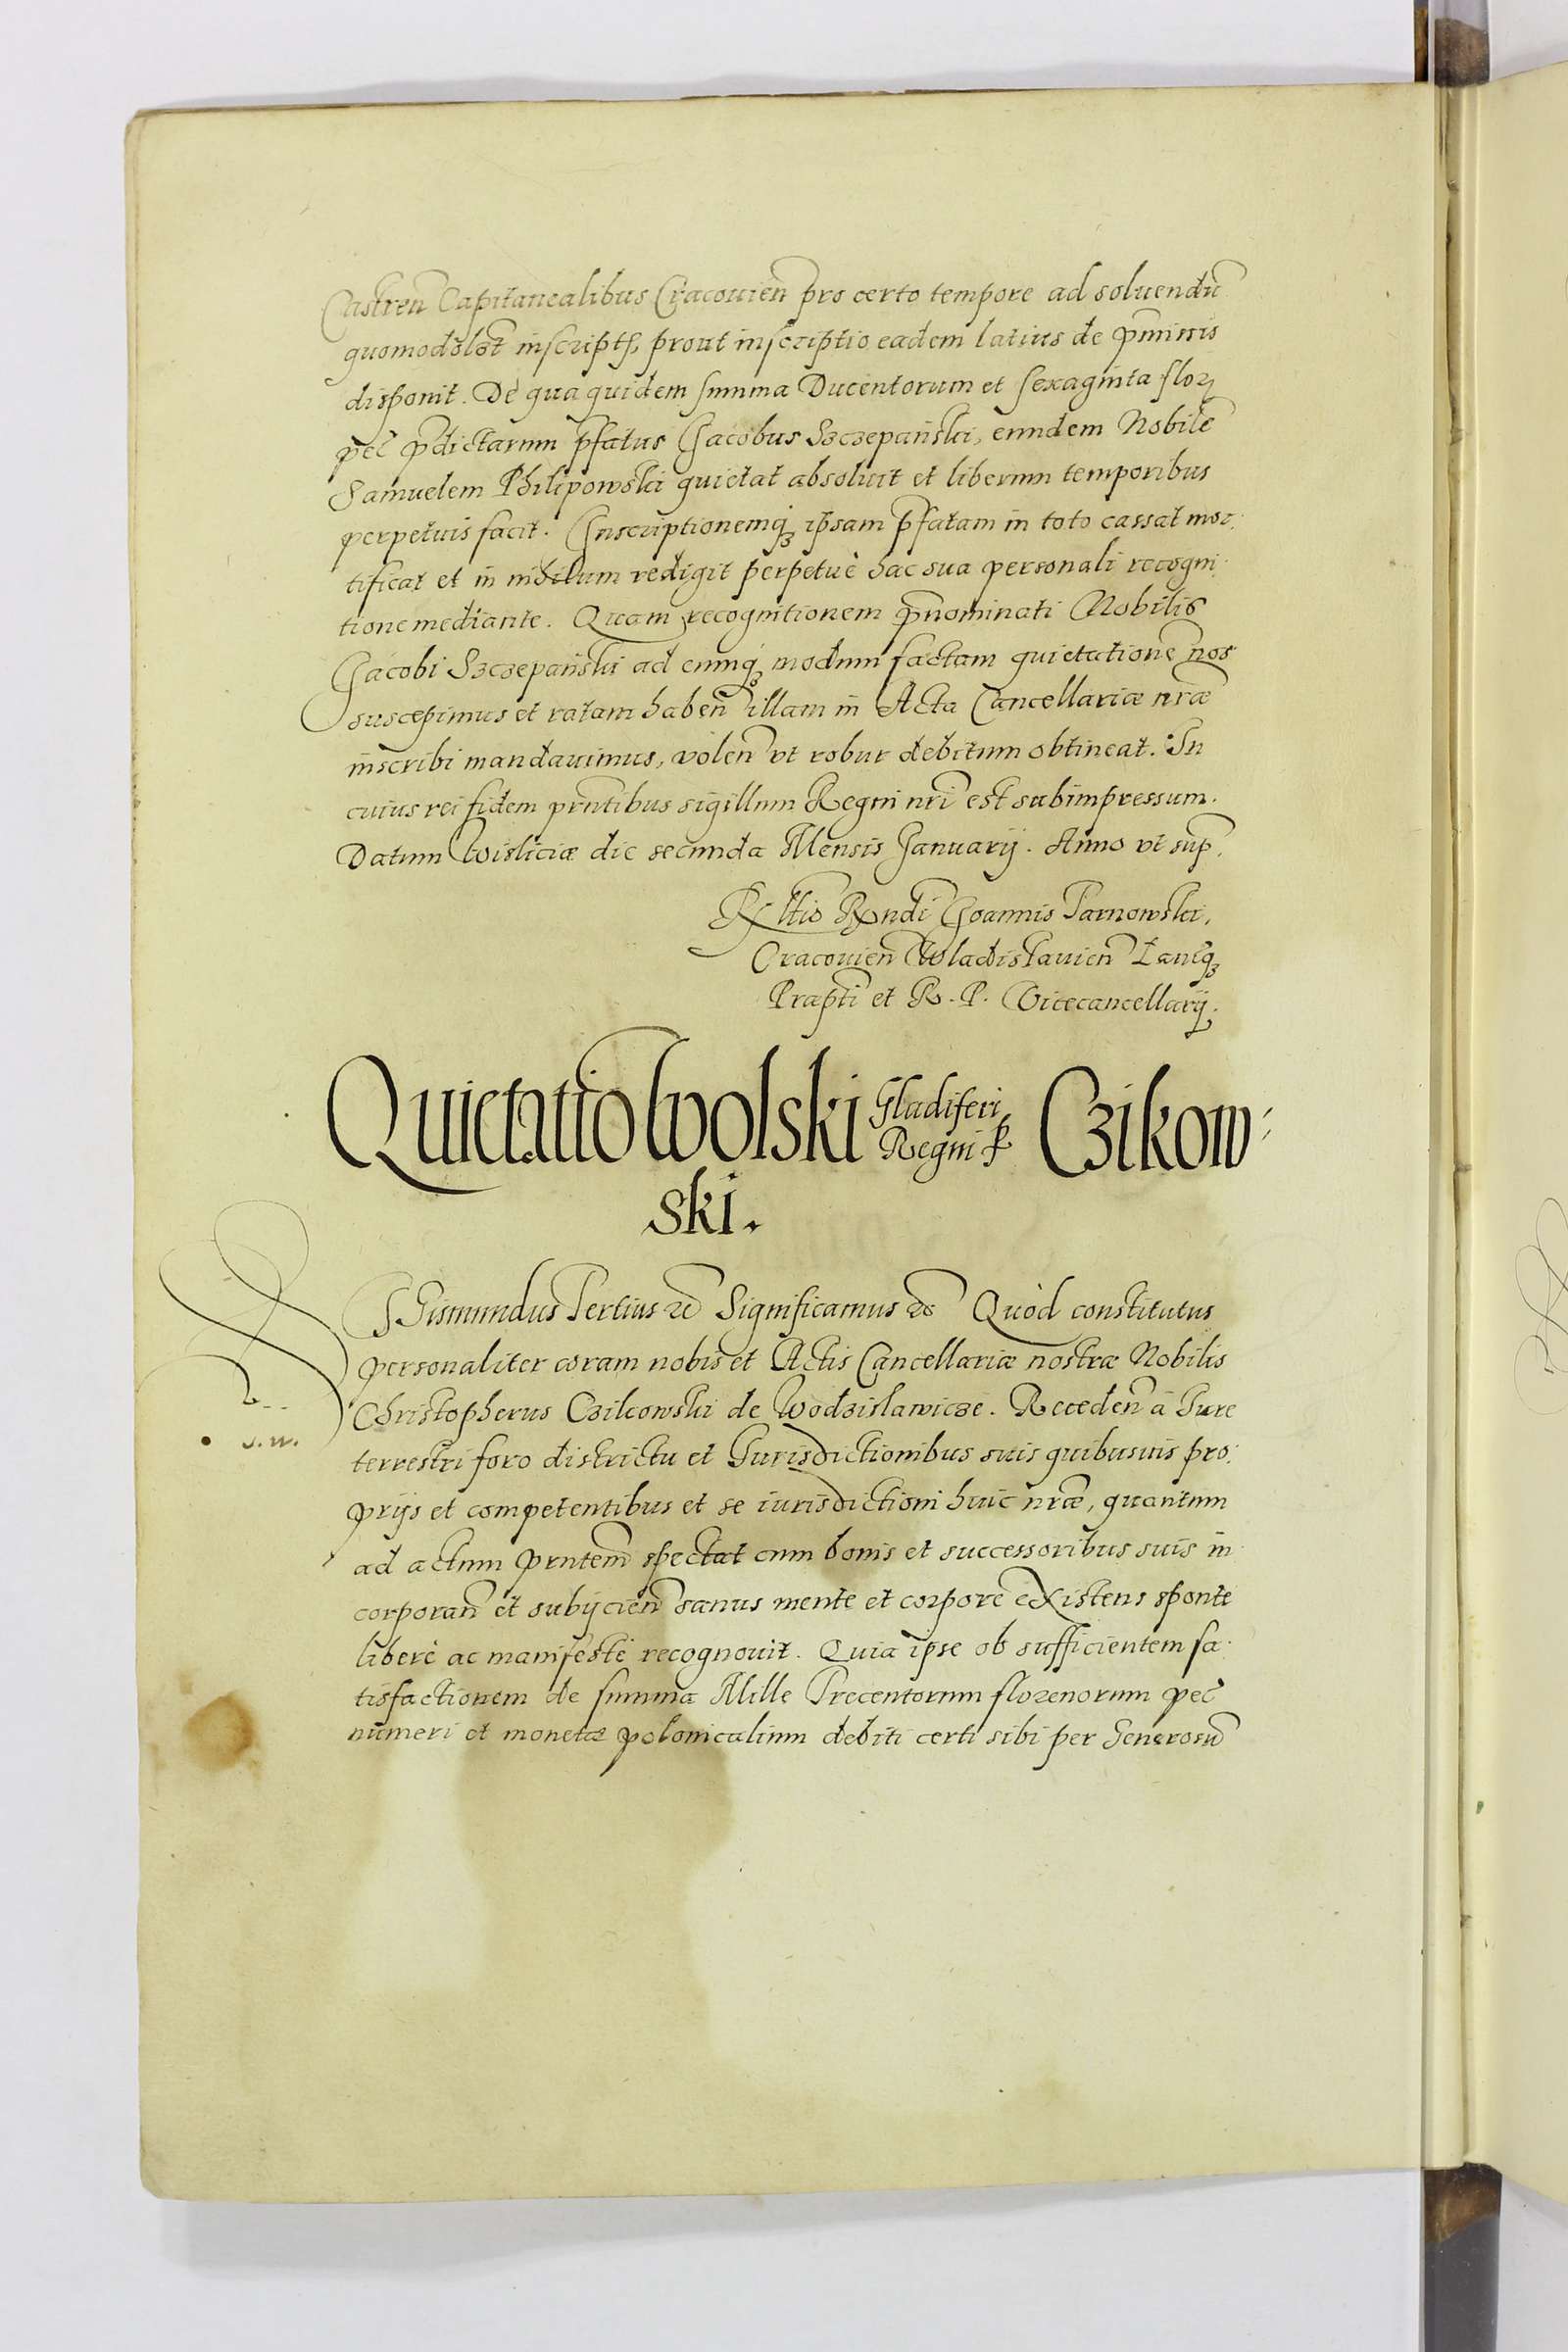 Castreñ Capitanealibus Cracouieñ pro certo tempore ad soluendũ
quomodolõt inscripts, prout inscriptio eadem latius de p̃missis
disponit. De qua quidem summa Ducentorum et sexaginta floꝝ
pec̃ p̃dictarum p̃fatus Jacobus Szczepański, eundem Nobilẽ
Samuelem Philipowski quietat absoluit et liberum temporibus
perpetuis facit. Inscriptionemqꝫ ipsam p̃fatam in toto cassat mor:
tificat et in nihilum redigit perpetuè hac sua personali recogni:
tione mediante. Quam recognitionem p̃nominati Nobilis
Jacobi Szczepański ad eumqꝫ modum factam quietationẽ nos
suscepimus et ratam habeñ illam in Acta Cancellariæ nr̃æ
inscribi mandauimus, voleñ vt robur debitum obtineat. In
cuius rei fidem prñtibus sigillum Regni nr̃i est subimpressum.
Datum Wisliciæ die secunda Mensis Januarij. Anno vt sup̃.
Rltio Rndi Joannis Tarnowski,
Cracouieñ Wladislauieñ Lanc̃qꝫ
Præpti et R. P. Vicecancellarij.
Quietatio Wolski Gladiferi
Regni ꝑ Czikow:
ski.
SIgismundus Tertius ꝛc̃ Significamus ꝛc̃ Quòd constitutus
personaliter coram nobis et Actis Cancellariæ nostræ Nobilis
Christopherus Czikowski de Wodzislawicze. Recedeñ à Jure
terrestri foro districtu et Jurisdictionibus suis quibusuis pro:
prijs et competentibus et se iurisdictioni huic nr̃æ, quantum
ad actum prñtem spectat cum bonis et successoribus suis in:
corporañ et subijcieñ sanus mente et corpore existens sponte
liberè ac manifestè recognouit. Quia ipse ob sufficientem sa:
tisfactionem de summa Mille Trecentorum florenorum pec̃
numeri et monetæ polonicalium debiti certi sibi per Generosũ